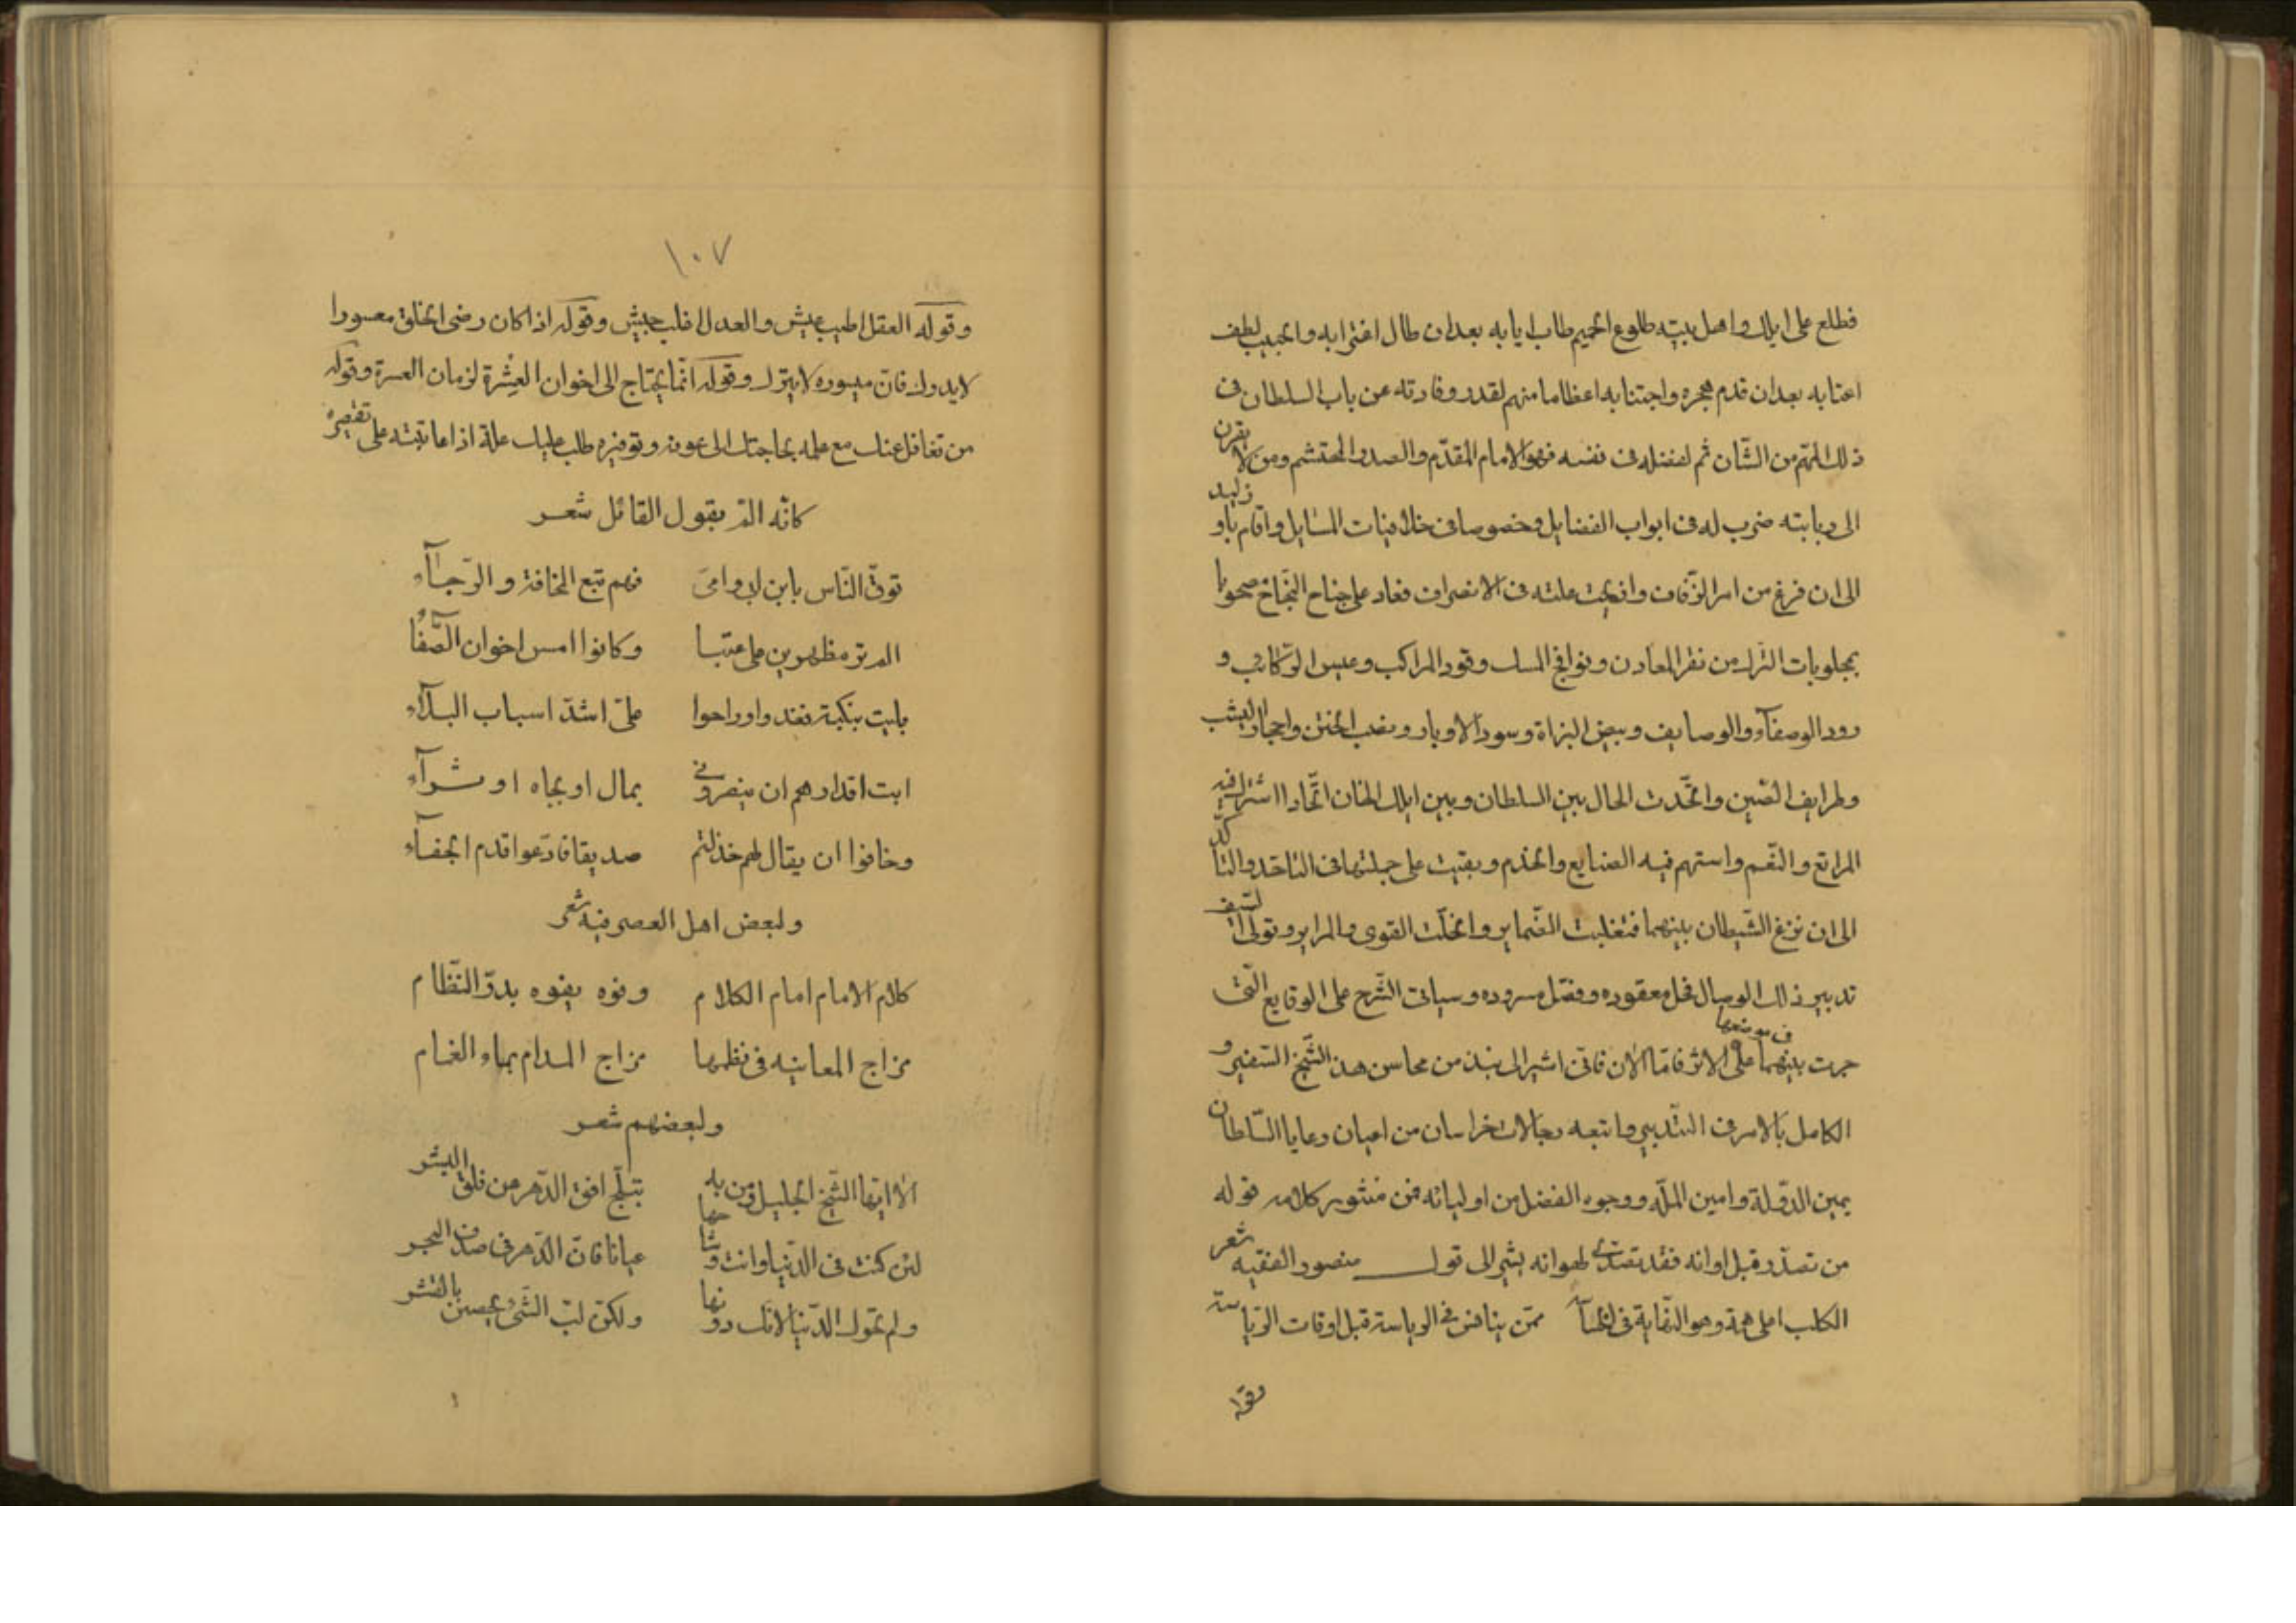 فطلع على ايلك واهل بيته طلوع الحميم طاب ايابه بعد ان طال اغترابه والحبيب لطف
اعتابه بعد ان قدم هجره واجتنابه اعظاما منهم لقدر وفادته عن باب السلطان فى
ذلك المهم من الشّان ثم لفضله فى نفسه فهو الامام المقدّم والصدر المحتشم ومن لا يقرن
الى وبابته ضرب له فى ابواب الفضايل وخصوصا فى خلافيات المسايل واقام باوزكند
الى ان فرغ من امر الزّفاف وانزيحت علته فى الانصراف فعاد على جناح النّجاح مصحوبا
بمجلوبات الترك من نقر المعادن ونوافج المسك وقود المراكب وعيس الرّكائب و
رود الوصفآء والوصايف وبيض البزاة وسود الاوبار ونصب الختن واحجار اليشب
وطرايف الصّين واتّحدت الحال بين السلطان وبين ايلك الخان اتّحادا اشترك فيه
المرابع والنّعم واستهم فيه الصنايع والخدم وبقيت على جملتها فى التاحّد والتاكّد
الى ان نزغ الشّيطان بينهما فتغلبت الضّماير وانحلّت القوى والمراير وتولّى السّيف
تدبير ذلك الوصال فحل معقوده وفصل مسروده وسياتى الشّرح على الوقايع الّتى
جرت بينهما فى موضعها على الاثر فامّا الآن فانّى اشير الى نبذ من محاسن هذا الشّيخ السّفير و
الكامل بالامر فى التّدبير وما تبعه رجالات خراسان من اعيان رعايا السّلطان
يمين الدّولة وامين الملّه ووجوه الفضل من اوليائه فمن منثور كلامه قوله
من تصدّر قبل اوانه فقد تصدّى لهوانه يشير الى قول منصور الفقيه شعر
الكلب اعلى همة وهو النّهاية فى الخساسة ممّن ينافس فى الرياسة قبل اوقات الرّياسة
وقوله
١٠٧
وقوله العقل اطيب عيش والعدل اغلب جيش وقوله اذا كان رضى الخلق معسورا
لا يدرك فانّ ميسوره لا يترك وقوله انّما يحتاج الى اخوان العشرة لزمان العسرة وقوله
من تغافل عنك مع علمه بحاجتك الى عونه وتوفيره طلب عليك علة اذا عاتبته على تقصيره
كانّه الم بقول القائل شعر
توقّ النّاس يابن ابى وامىّ فهم تبع المخافة والرّجآء
الم تر مظهرين على عتبا وكانوا امس اخوان الصّفآء
بليت بنكبة فغدوا وراحوا علىّ اشدّ اسباب البلآء
ابت اقدارهم ان ينصرونى بمال او بجاه او شرآء
وخافوا ان يقال لهم خذلتم صديقا فادّعوا قدم الجفآء
ولبعض اهل العصر فيه شعر
كلام الامام امام الكلام وفوه يفوه بدرّ النّظام
مزاج المعانيه فى نظمها مزاج المدام بماء الغمام
ولبعضهم شعر
الا ايّها الشّيخ الجليل ومن به تبلّج افق الدّهر من فلق البشر
لئن كنت فى الدّنيا وانت وشاحها عيانا فانّ الدّهر فى صدف البحر
ولم تحوك الدّنيا لانّك دونها ولكنّ لبّ الشّئ يحصن بالقشر